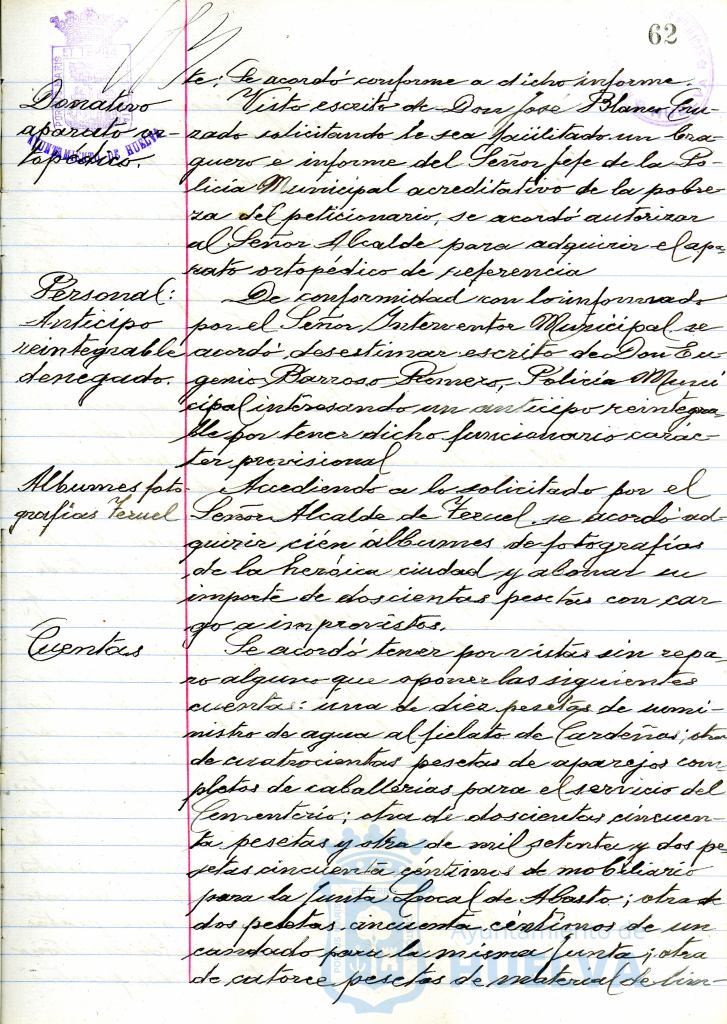 62
te; Se acordó conforme a dicho informe.
Donativo
aparato or-
topédico.
AYUNTAMIENTO DE HUELVA
Visto escrito de Don José Blanco Cru-
zado solicitando le sea facilitado un bra-
guero e informe del Señor Jefe de la Po-
licía Municipal acreditativo de la pobre-
za del peticionario, se acordó autorizar
al Señor Alcalde para adquirir el apa-
rato ortopédico de referencia
Personal:
Anticipo
reintegrable
denegado.
De conformidad con lo informado
por el Señor Interventor Municipal se
acordó desestimar escrito de Don Eu-
genio Barroso Romero, Policía Muni-
cipal interesando un anticipo reintegra-
ble por tener dicho funcionario carác-
ter provisional
Albumes foto-
grafías Teruel
Accediendo a lo solicitado por el
Señor Alcalde de Teruel, se acordó ad-
quirir cién álbumes de fotografías
de la heróica ciudad y abonar su
importe de doscientas pesetas con car-
go a imprevistos.
Cuentas
Se acordó tener por vistas sin repa-
ro alguno que oponer las siguientes
cuentas: una de diez pesetas de sumi-
nistro de agua al fielato de Cardeñas; otra
de cuatrocientas pesetas de aparejos com-
pletos de caballerías para el servicio del
Cementerio; otra de doscientas cincuen-
ta pesetas y otra de mil setenta y dos pe-
setas cincuenta céntimos de mobiliario
para la Junta Local de Abasto; otra de
dos pesetas cincuenta céntimos de un
candado para la misma Junta; otra
de catorce pesetas de material de lim-
Ayuntamiento de
HUELVA